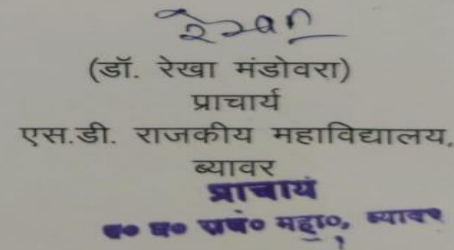 रेखा
(डॉ. रेखा मंडोवरा)
प्राचार्य
एस.डी. राजकीय महाविद्यालय,
ब्यावर
प्राचार्य
स० ध० राज० महा०, ब्यावर